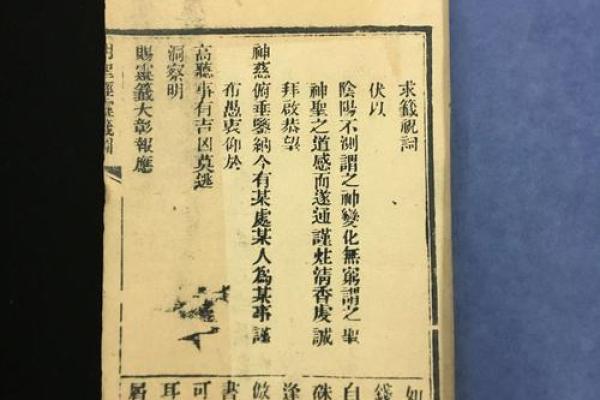 求籤祝詞
伏以
陰陽不測謂之神變化無窮謂之聖
神聖之道感而遂通謹炷清香虔誠
拜啟恭望
神慈俯垂鑒納今有某處某人為某事謹
布愚衷仰於
高聽事有吉凶莫逃
洞察明
賜靈籤大彰報應
聖經靈籤
如
錢
自
硃
逢
倣
書
可
耳